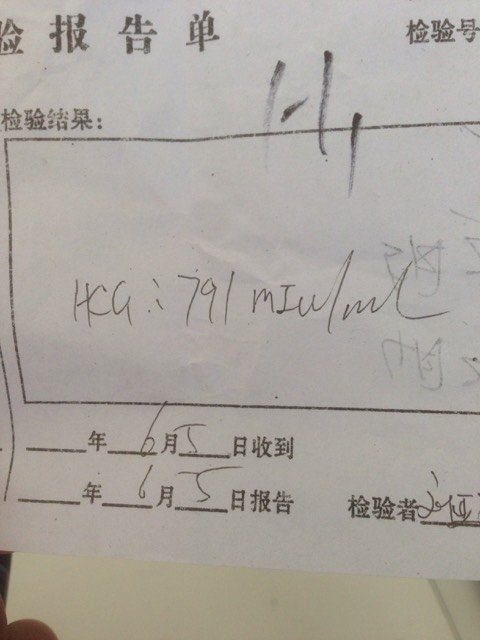 验报告单
检验号
检验结果:
HCG: 791 mIu/mL
年6月5日收到
年6月5日报告
检验者